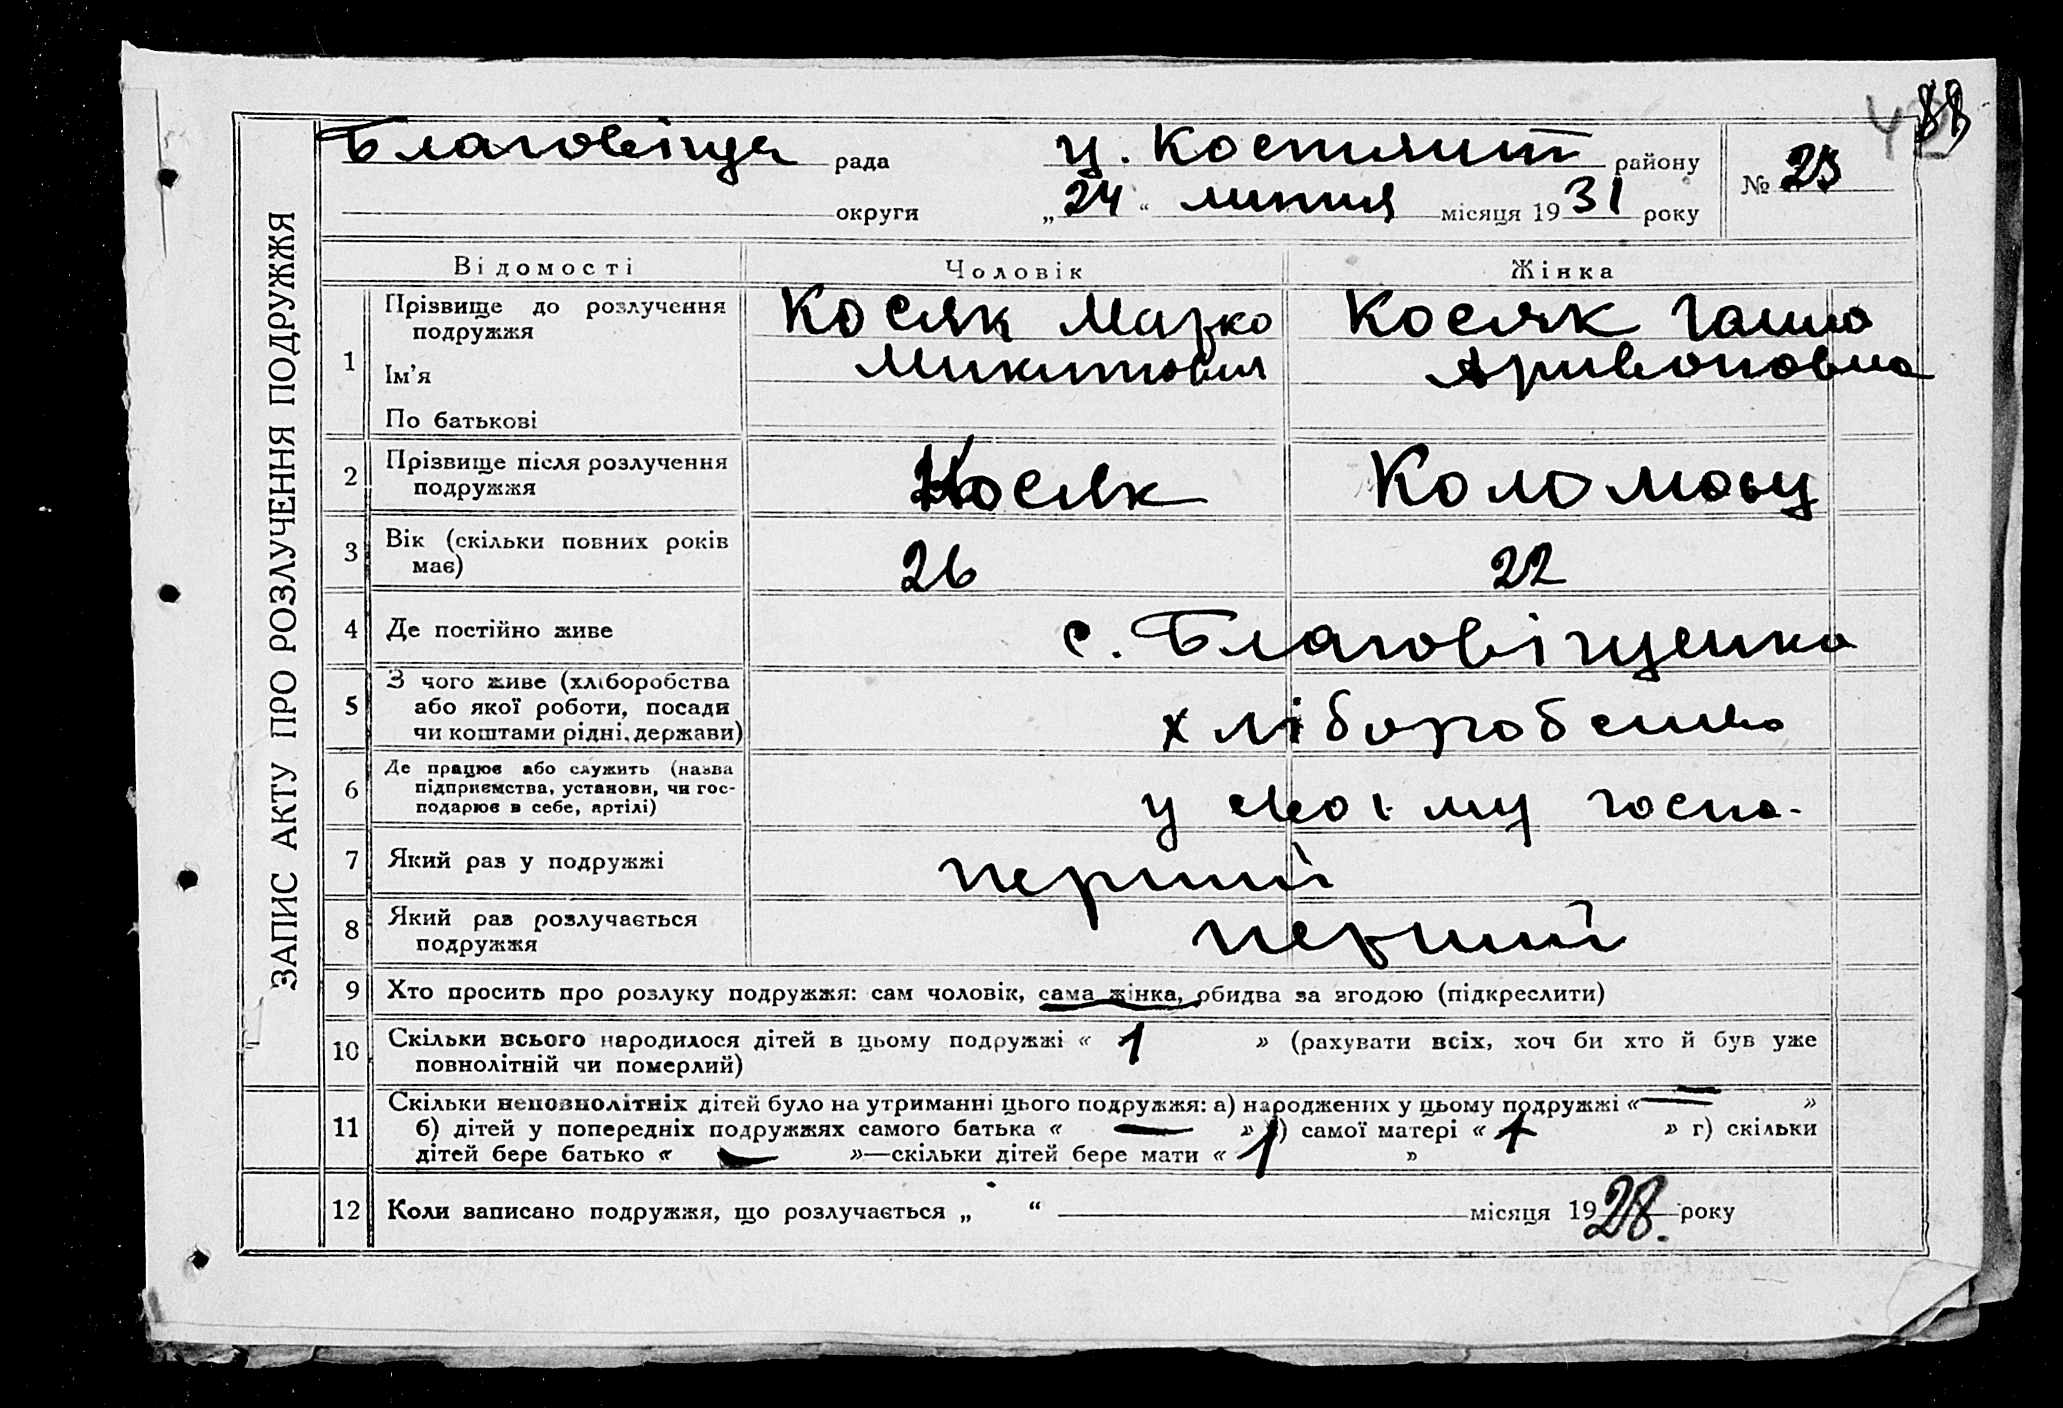 88
Благовіщ рада ц. Костянт району № 25
округи „ 24 “ липня місяця 1931 року
ЗАПИС АКТУ ПРО РОЗЛУЧЕННЯ ПОДРУЖЖЯ
Відомості Чоловік Жінка
1 Прізвище до розлучення подружжя Косяк Марко Косяк Ганна
Ім'я Микитович
По батькові
2 Прізвище після розлучення подружжя Косяк Коломоєц
3 Вік (скільки повних років має) 26 22
4 Де постійно живе с. Благовіщенка
5 З чого живе (хліборобства або якої роботи, посади чи коштами рідні, держави) хліборобство
6 Де працює або служить (назва підприємства, установи, чи господарює в себе, артілі) у своїму госпо-
7 Який раз у подружжі перший
8 Який раз розлучається подружжя перший
9 Хто просить про розлуку подружжя: сам чоловік, сама жінка, обидва за згодою (підкреслити)
10 Скільки всього народилося дітей в цьому подружжі « 1 » (рахувати всіх, хоч би хто й був уже
повнолітній чи померлий)
11 Скільки неповнолітніх дітей було на утриманні цього подружжя: а) народжених у цьому подружжі « — »
б) дітей у попередніх подружжях самого батька « — » ) самої матері « » г) скільки
дітей бере батько « — »—скільки дітей бере мати « 1 »
12 Коли записано подружжя, що розлучається „ “ місяця 1928. року